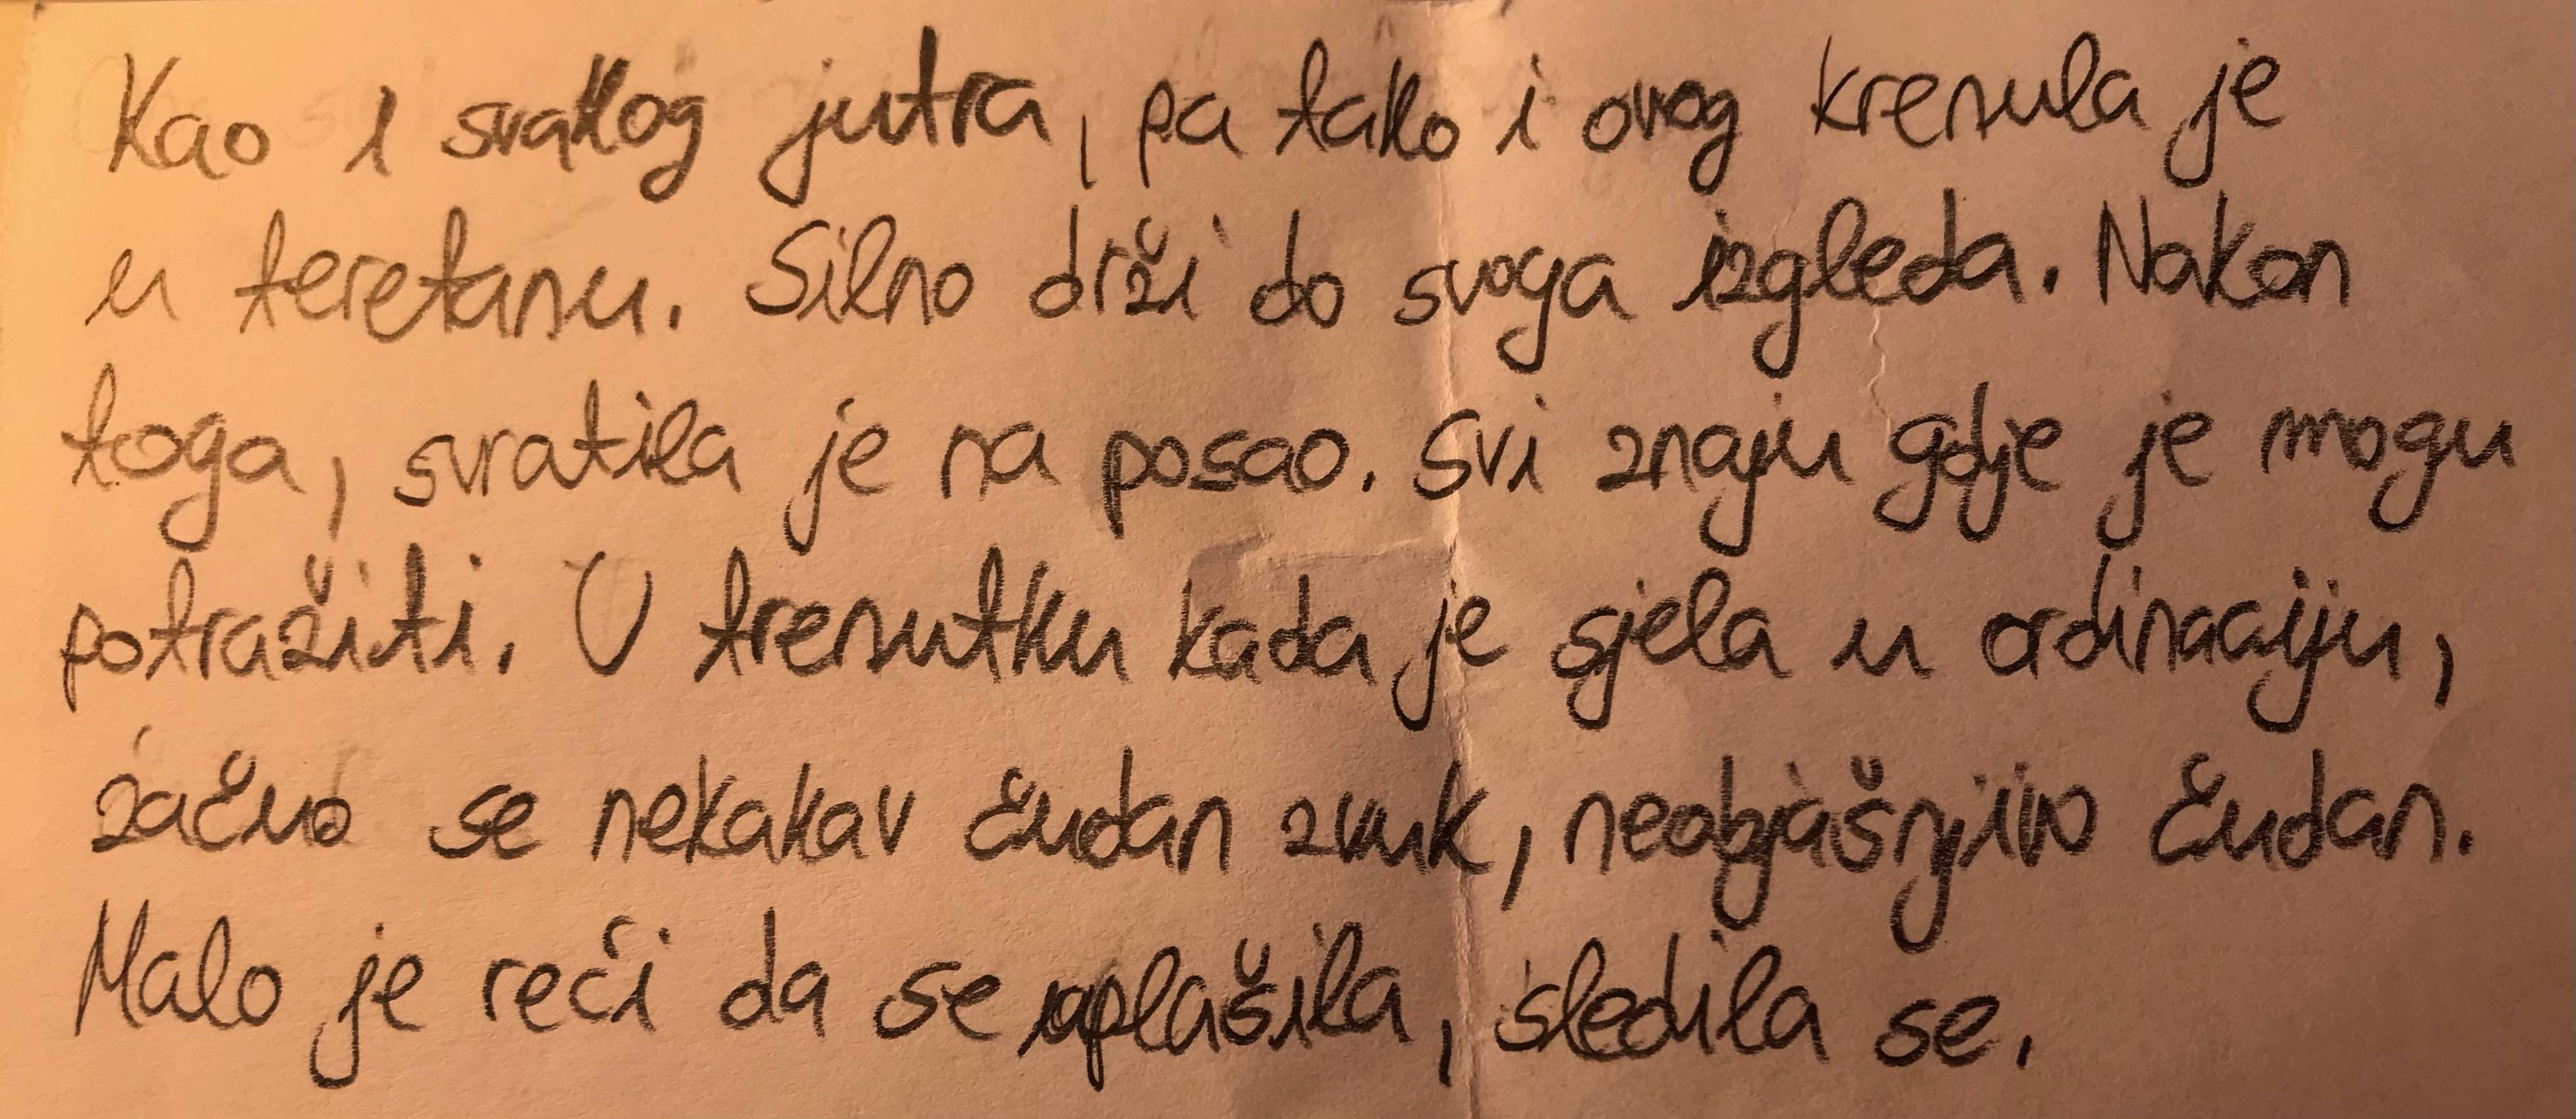 Kao i svakog jutra, pa tako i ovog krenula je
u teretanu. Silno drži do svoga izgleda. Nakon
toga, svratila je na posao. Svi znaju gdje je mogu
potražiti. U trenutku kada je sjela u ordinaciju,
začuo se nekakav čudan zvuk, neobjašnjivo čudan.
Malo je reći da se uplašila, sledila se.